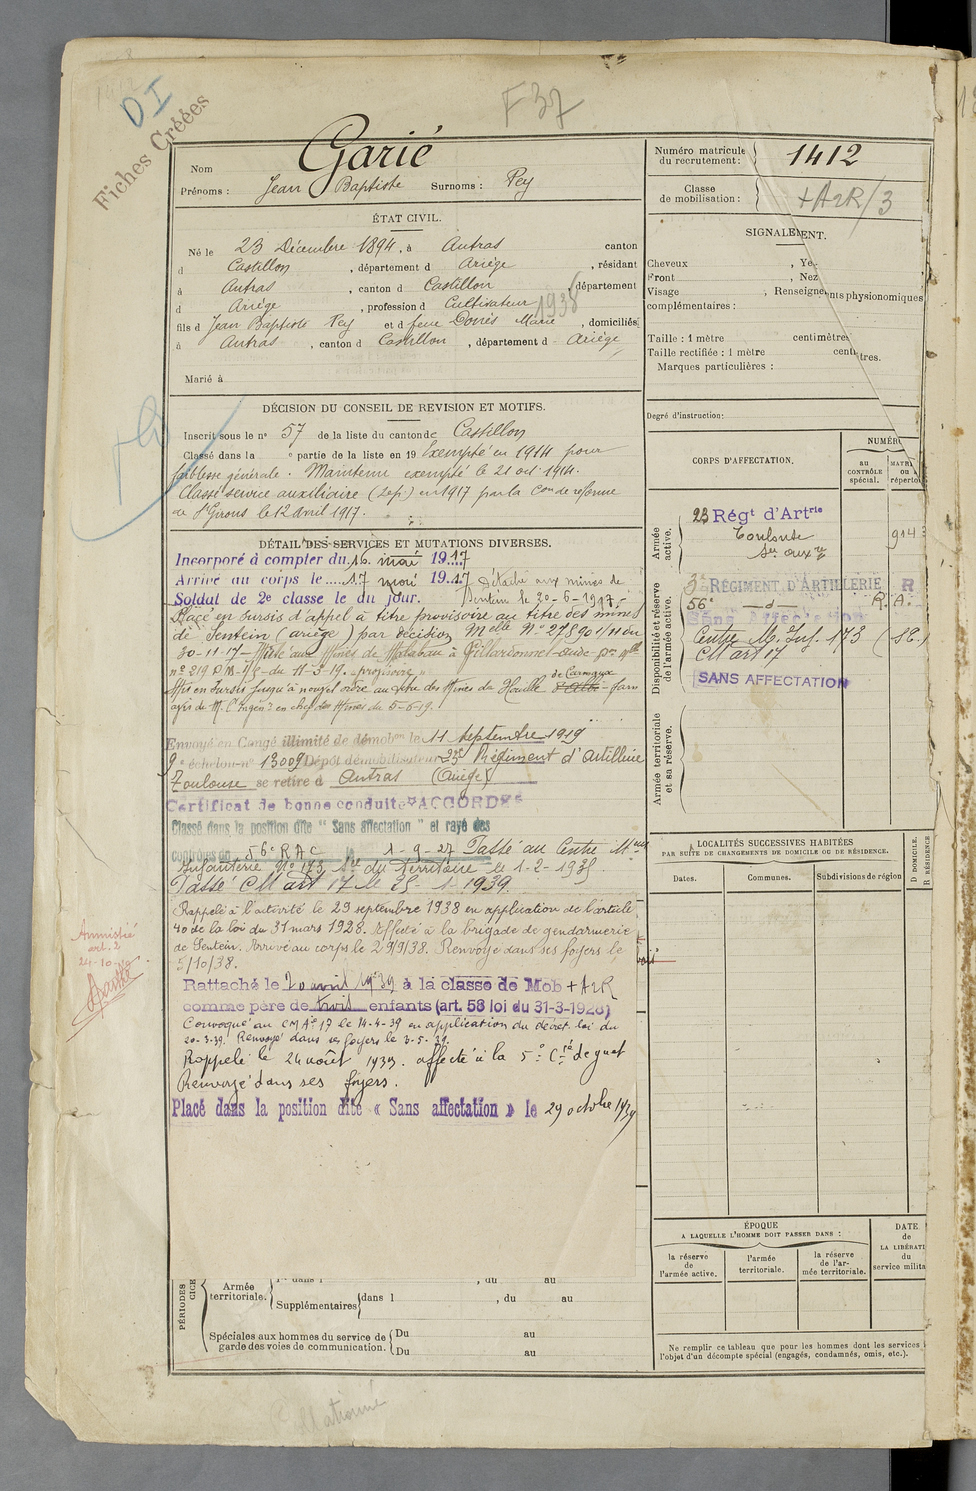 DI
Fiches Créées
F 37
Nom Garié
Prénoms : Jean Baptiste Surnoms : Pey
Numéro matricule du recrutement : 1412
Classe de mobilisation : + A2R/3
ÉTAT CIVIL.
Né le 23 Décembre 1894, à Autras canton
d Castillon, département d Ariège, résidant
à Autras, canton d Castillon, département
d Ariège, profession d Cultivateur 1938
fils d Jean Baptiste Pey et d feue Domès Marie, domiciliés
à Autras, canton d Castillon, département d Ariège
Marié à
SIGNALEMENT.
Cheveux , Ye
Front , Nez
Visage , Renseignements physionomiques
complémentaires :
Taille : 1 mètre centimètres
Taille rectifiée : 1 mètre centimètres.
Marques particulières :
Degré d'instruction :
DÉCISION DU CONSEIL DE REVISION ET MOTIFS.
Inscrit sous le n° 57 de la liste du canton de Castillon
Classé dans la e partie de la liste en 19 Exempté en 1914 pour
faiblesse générale. Maintenu exempté le 21 oct. 1914.
Classé service auxiliaire (2e p.) en 1917 par la Con de réforme
de St Girons le 12 avril 1917.
DÉTAIL DES SERVICES ET MUTATIONS DIVERSES.
Incorporé à compter du 16 mai 1917
Arrivé au corps le 17 mai 1917 Détaché aux mines de
Soldat de 2e classe le du jour. Sentein le 20-6-1917.-
Placé en sursis d'appel à titre provisoire au titre des mines
de Sentein (Ariège) par décision Melle N° 27890 1/11 du
30-11-17 - aux Mines de à Villardonnel Aude
n° 219 du 11-3-19. provisoire
Mis en sursis jusqu'à nouvel ordre au titre des Mines de Houille de Carmaux d'Albi - Tarn
avis de Mr l'Ingénr en chef des Mines du 5-6-19.
Envoyé en Congé illimité de démobon le 11 Septembre 1919
9e échelon n° 13009 Dépôt démobilisateur 23e Régiment d'Artillerie
Toulouse se retire à Autras (Ariège)
Certificat de bonne conduite "ACCORDÉ"
Classé dans la position dite "Sans affectation" et rayé des
contrôles du 56e RAC le 1-9-27 Passé au Centre M
Infanterie N° 173, du Territoire le 1-2-1935.
Passé CM art 17 le 25 1 1939.
Rappelé à l'activité le 29 septembre 1938 en application de l'article
40 de la loi du 31 mars 1928. Affecté à la brigade de gendarmerie
de Sentein. Arrivé au corps le 29/9/38. Renvoyé dans ses foyers le
5/10/38.
Rattaché le 20 avril 1939 à la classe de Mob + A2R
comme père de trois enfants (art. 58 loi du 31-3-1928)
Convoqué au CMA 17 le 14-4-39 en application du décret loi du
20-3-39. Renvoyé dans ses foyers le 3-5-39.
Rappelé le 24 août 1939. affecté à la 5e Cie de guet
Renvoyé dans ses foyers.
Placé dans la position dite « Sans affectation » le 29 octobre 1939
Amnistié
art. 2
24-10-
CORPS D'AFFECTATION.
NUMÉR
au CONTRÔLE spécial.
MATRI
ou
réperto
Armée active.
23 Régt d'Artrie
Toulouse
Son auxre
914
Disponibilité et réserve de l'armée active.
3e RÉGIMENT D'ARTILLERIE R
56e - d - R.A.
Sans Affectation
Centre M. Inf. 173
CM art 17
SANS AFFECTATION
Armée territoriale et sa réserve.
LOCALITÉS SUCCESSIVES HABITÉES
PAR SUITE DE CHANGEMENTS DE DOMICILE OU DE RÉSIDENCE.
Dates. Communes. Subdivisions de région
D DOMICILE.
R RÉSIDENCE
ÉPOQUE
A LAQUELLE L'HOMME DOIT PASSER DANS :
la réserve de l'armée active.
l'armée territoriale.
la réserve de l'armée territoriale.
DATE
de
LA LIBÉRATI
du
service milita
PÉRIODES
CICE
Armée territoriale.
dans l , du au
Supplémentaires dans l , du au
Spéciales aux hommes du service de garde des voies de communication.
Du au
Du au
Ne remplir ce tableau que pour les hommes dont les services
l'objet d'un décompte spécial (engagés, condamnés, omis, etc.).
Collationné